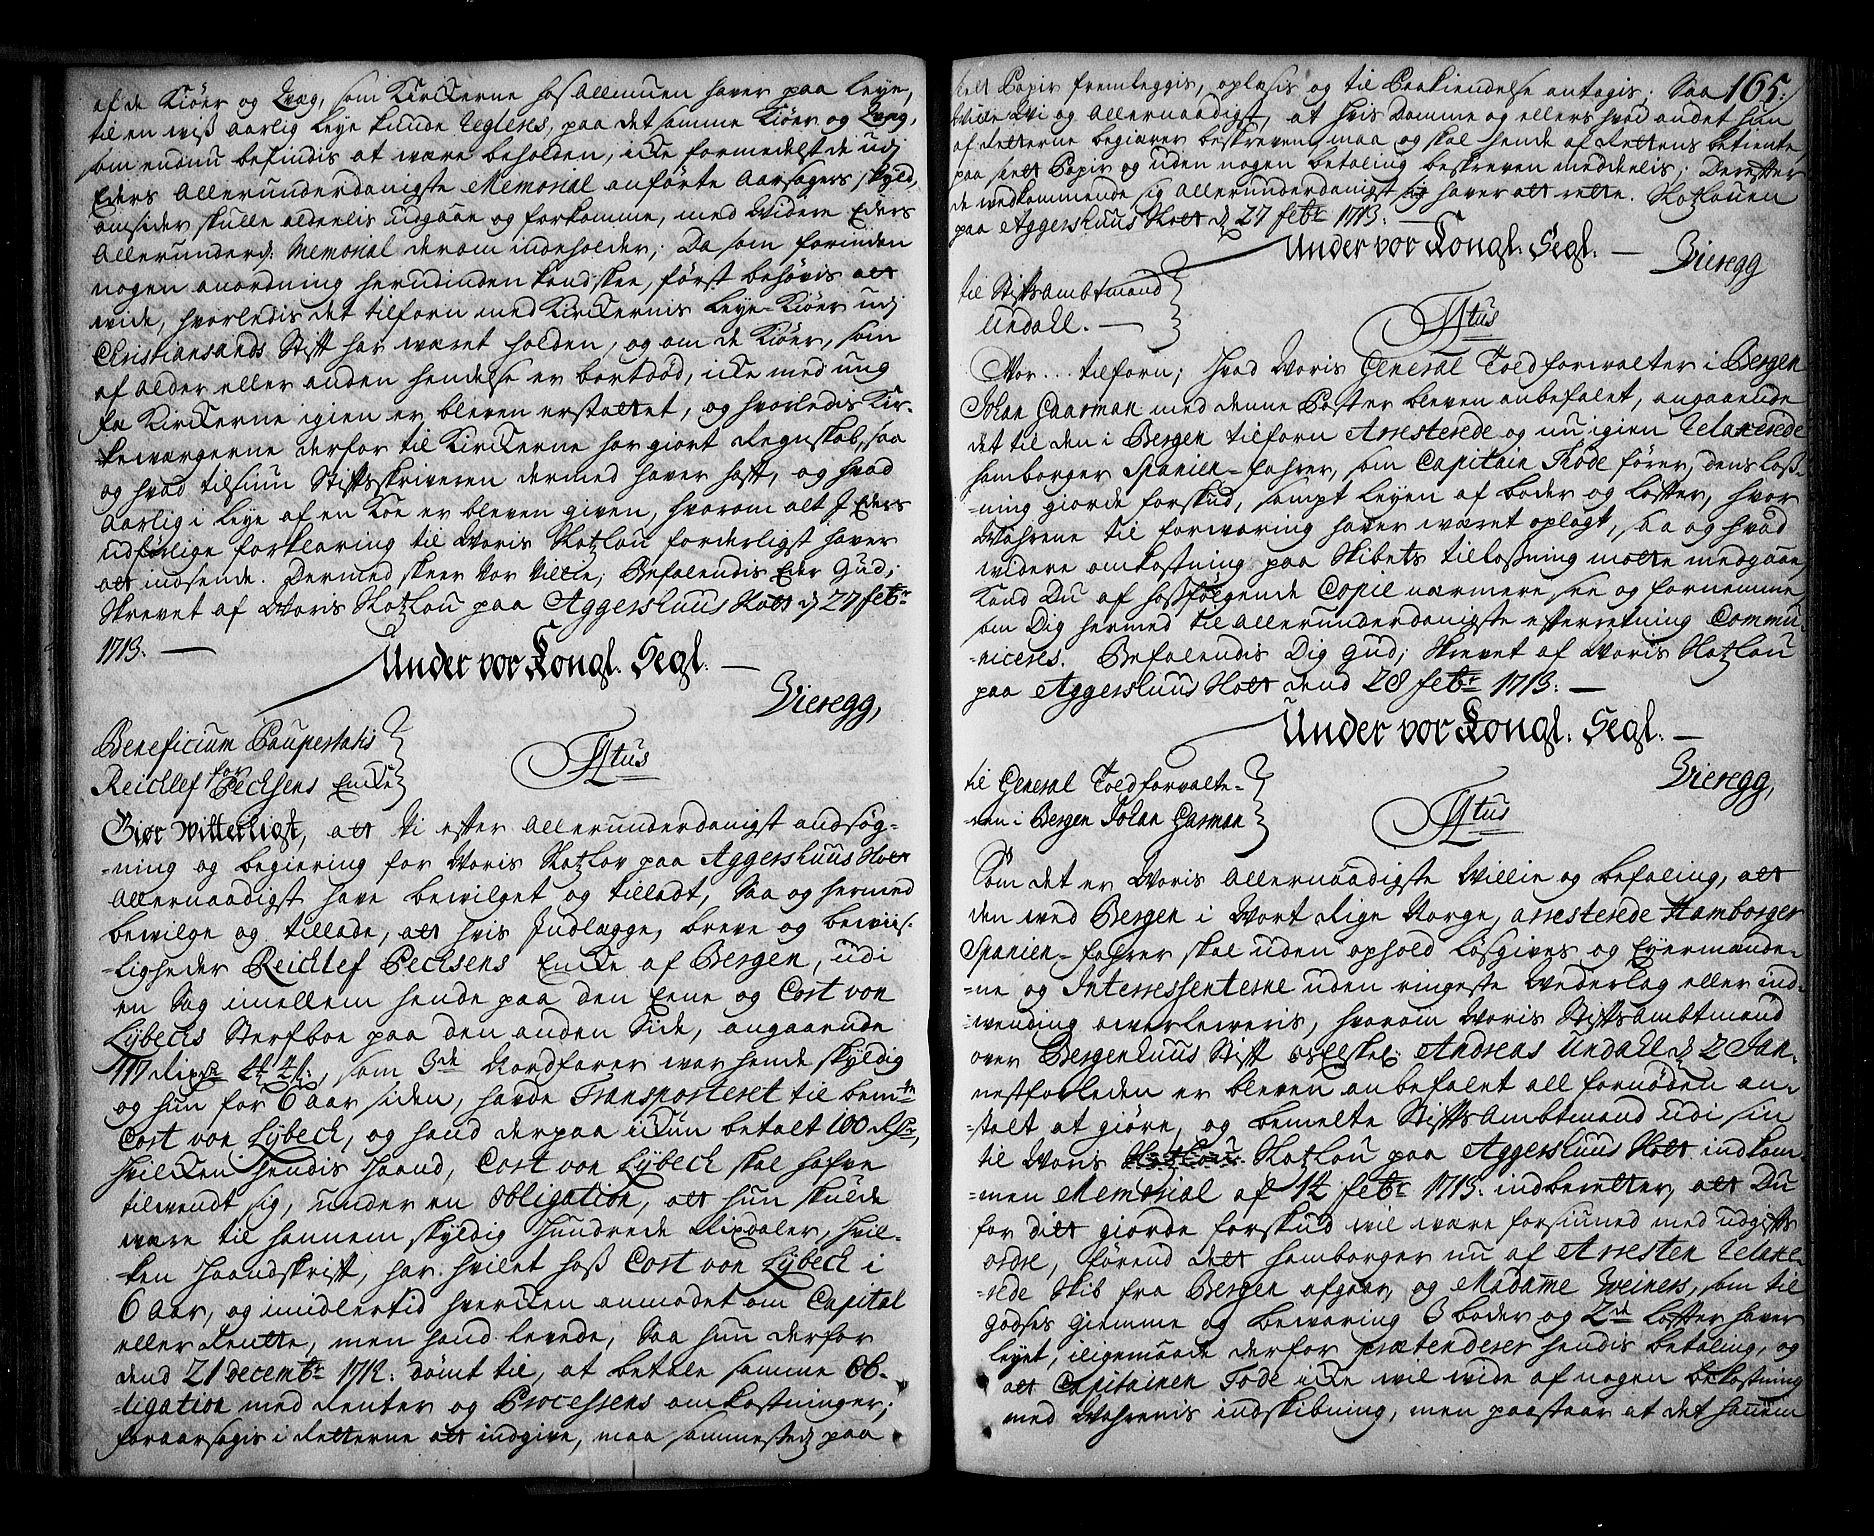 af de Kiøer og Qvæg, som Kirckerne hos Allmuen haver paa Leye,
til en wiß aarlig Leye kunde Regleres, paa det samme Kiøer og Qvæg,
som endnu befindis at wære beholden, icke formedelst de udj
Eders Allerunderdanigste Memorial anførte Aarsagers skyld,
omsider skulle aldelis udgaae og forkomme, med Widere Eders
Allerunderd: Memorial derom indeholder; Da som forinden
nogen anordning herudinden kand skee, først behøvis att
wide, hvorledis det tilforn med Kirckernis Leye-Kiøer udj
Christiansands Stift har wæret holden, og om de Kiøer, som
af alder eller anden hendelse er bortdød, icke med ung
Fæ Kirckerne igien er bleven erstattet, og hvorledis Kir-
keværgerne derfor til Kirckerne har giort Regnskab, saa
og hvad tilsiun Stiftsskriveren dermed haver haft, og hvad
aarlig i Leye af en Koe er bleven given, hvorom alt I Eders
udførlige forklaring til Woris Slotzlou forderligst haver
att indsende. Dermed skeer Vor Villie; Befalendis Eder Gud;
Skrevet af Woris Slotzlou paa Aggershuus Slott d 27 febr
1713. —
Under vor Kongl. Segl. —
Vieregg,
Beneficium Paupertatis
for
Reichlef Pechsens Encke
Tjtus
Giør Witterligt, att Vi efter Allerunderdanigst andsøg-
-ning og begiering for Woris Slotzlov paa Aggershuus Slott
Allernaadigst have bewilget og tilladt, Saa og hermed
bewilge og tillade, att hvis Indlægge, breve og bewiis-
-ligheder Reichlef Pechsens Encke af Bergen, udi
en Sag imellem hende paa den Eene og Cort von
Lybechs Sterfboe paa den anden Side, angaaende
som 3de Nordfarer war hende skyldig
og hun for 6 aar siden, hafde Transporteret til bemte
Cort von Lybeck, og hand derpaa ickun betalt 100 Rdr,
hvilcken hendis Haand, Cort von Lybeck skal hafve
tilvendt sig, under en Obligation, att hun skulde
wære til hannem skyldig Hundrede Rixdaler, hvil-
-ken Haandskrift, har hvilet hoß Cort von Lybeck i
6 Aar, og imidlertid hvercken anmodet om Capital
eller Rentte, men hand levede, Saa hun derfor
dend 21 decembr 1712: dømt til, at betale samme Ob-
-ligation med Renter og Processens omkostninger;
foraarsagis i Retterne att indgive, maa sammested paa
165.
slett Papir fremleggis, oplæsis og til Paakiendelse antagis. Saa
Wille Wi og Allernaadigst, at hvis Domme og ellers hvad andet hun
af Retterne begiærer beskreven, maa og skal hende af Rettens betiente,
paa slett Papir og uden nogen betaling beskreven meddelis; Derefter
de wedkommende sig Allerunderdanigst haver att rette. Slotzlouen
paa Aggershuus Slott d 27 febr 1713. —
Under vor Kongl. Segl. —
Vieregg
til StiftsAmbtmand
Undall. —
Tjtus
Vor.. tilforn; Hvad Woris General Toldforwalter i Bergen
Johan Gaarman med denne Poster bleven anbefalet, angaaende
det til den i Bergen tilforn Arresterede og nu igien Relaxerede
Hamborger Spanien-Fahrer, som Capitain Tode fører, dens loß-
-ning giorde forskud, sampt leyen af boder og lofter, hvor
Wahrene til forwaring haver wæret oplagt, saa og hvad
widere omkostning paa Skibets tillosning motte medgaae,
kand Du af hosfølgende Copie nærmere see og fornemme,
som Dig hermed til Allerunderdanigste efterretning Commu-
-niceres. Befalendis Dig Gud; Skrevet af Woris Slotzlou
paa Aggershuus Slott dend 28 febr 1713. —
Under vor Kongl. Segl. —
Vieregg,
til General Toldforvalte-
-ren i Bergen Johan Garman
Tjtus
Som det er Woris Allernaadigste Willie og befaling, att
den wed Bergen i Wort Rige Norge, arresterede Hamborger
Spanien-Fahrer skal uden ophold løsgives og Eyermænde-
-ne og Interressenterne uden ringeste Wederlag eller ind-
-wending overleweris, hvorom Woris StiftsAmbtmand
over Bergenhuus Stift Andreas Undall d 2 Jan-
nestforleden er bleven anbefalet all fornøden an-
-stalt at giøre, og bemelte StiftsAmbtmand udi sin
til Woris Slotzlou paa Aggershuus Slott indkom-
-men Memorial af 14 febr 1713: indberetter, att Du
for ditt giorde forskud wil wære forsiuned med udgifts
ordre, førend dett Hamborger nu af Arresten Relaxe-
-rede Skib fra Bergen afgaar, og Madame Weiners, som til
godses giemme og bewaring 3 boder og 2de lofter haver
leyet, iligemaade derfor prætenderer hendis betaling, og
att Capitainen Tode icke wil wide af nogen bekostning
med Wahrenis indskibning, men paastaar at det hannem